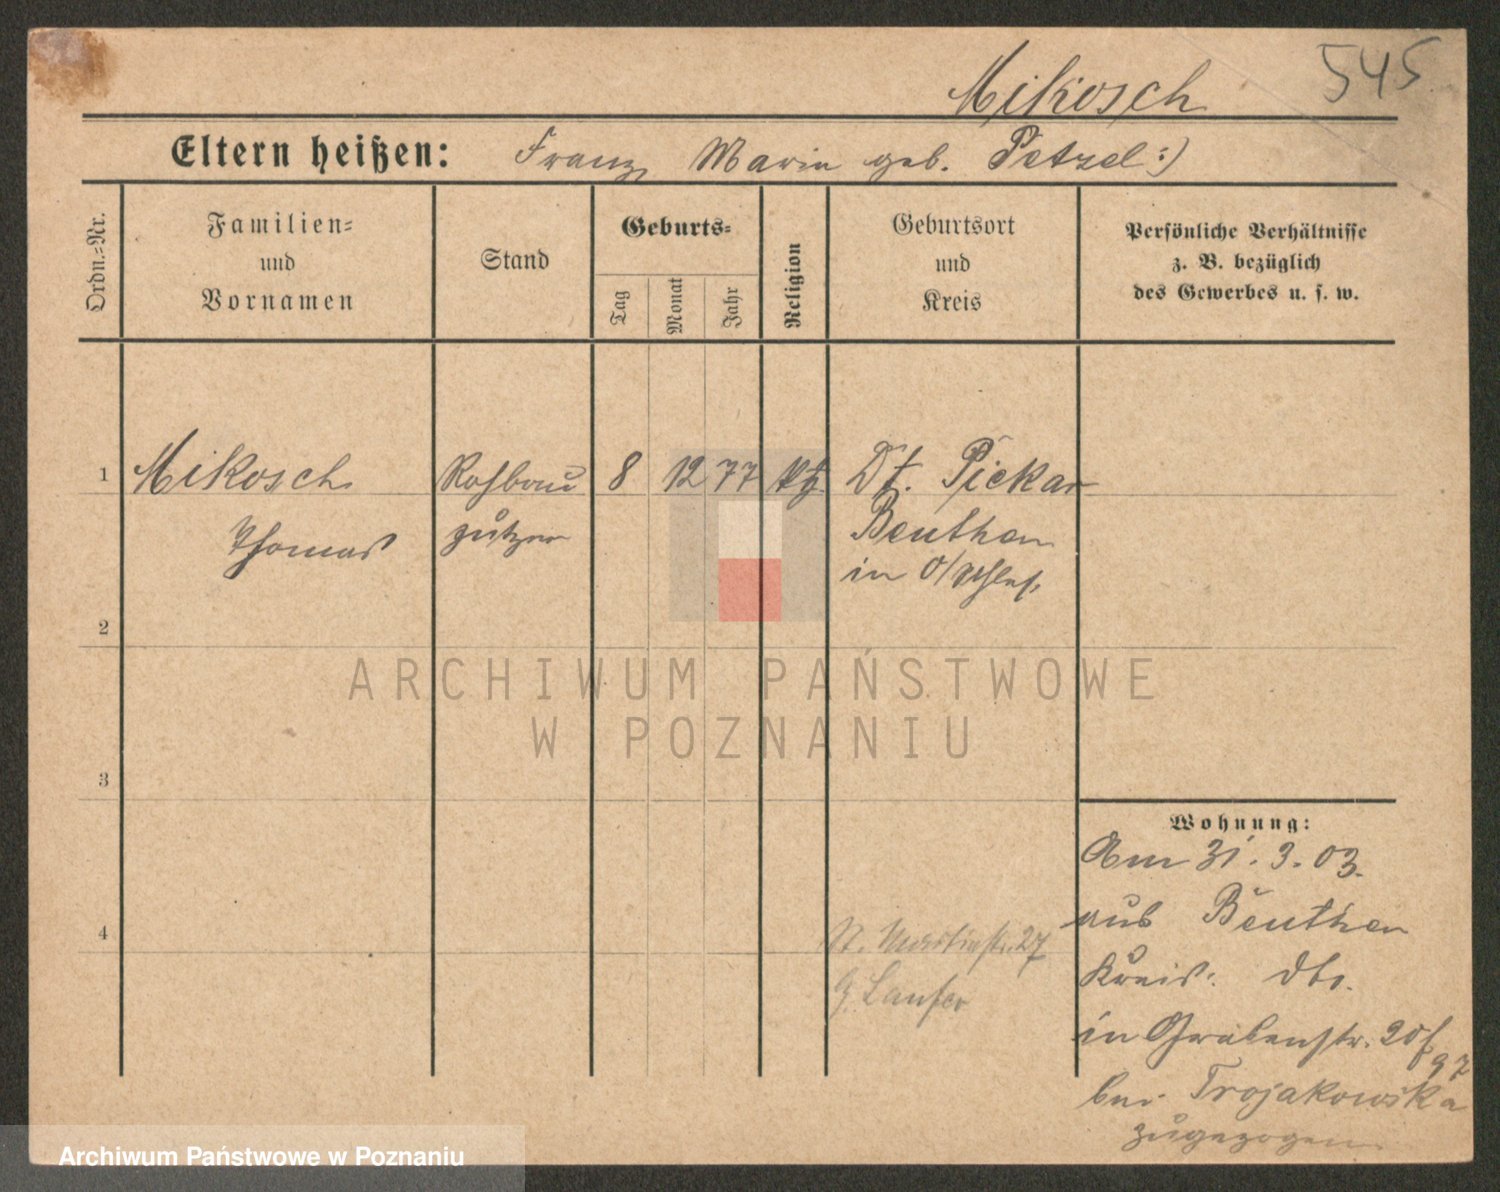 Mikosch 545
Eltern heißen: Franz Marie geb. Petzel :)
Ordn.=Nr.
Familien=
und
Vornamen
Stand
Geburts=
Tag
Monat
Jahr
Religion
Geburtsort
und
Kreis
Persönliche Verhältnisse
z. B. bezüglich
des Gewerbes u. s. w.
1 Mikosch Rohbau 8 12 77 kth Dt. Piekar
Thomas putzer Beuthen
in O/Schles.
2
3
4
Wohnung:
Am 31.3.03.
aus Beuthen
Kreis: dto.
in Grabenstr. 20
bei Trojakowska
zugezogen
St. Martinstr. 27
Laufer
ARCHIWUM PAŃSTWOWE
W POZNANIU
Archiwum Państwowe w Poznaniu